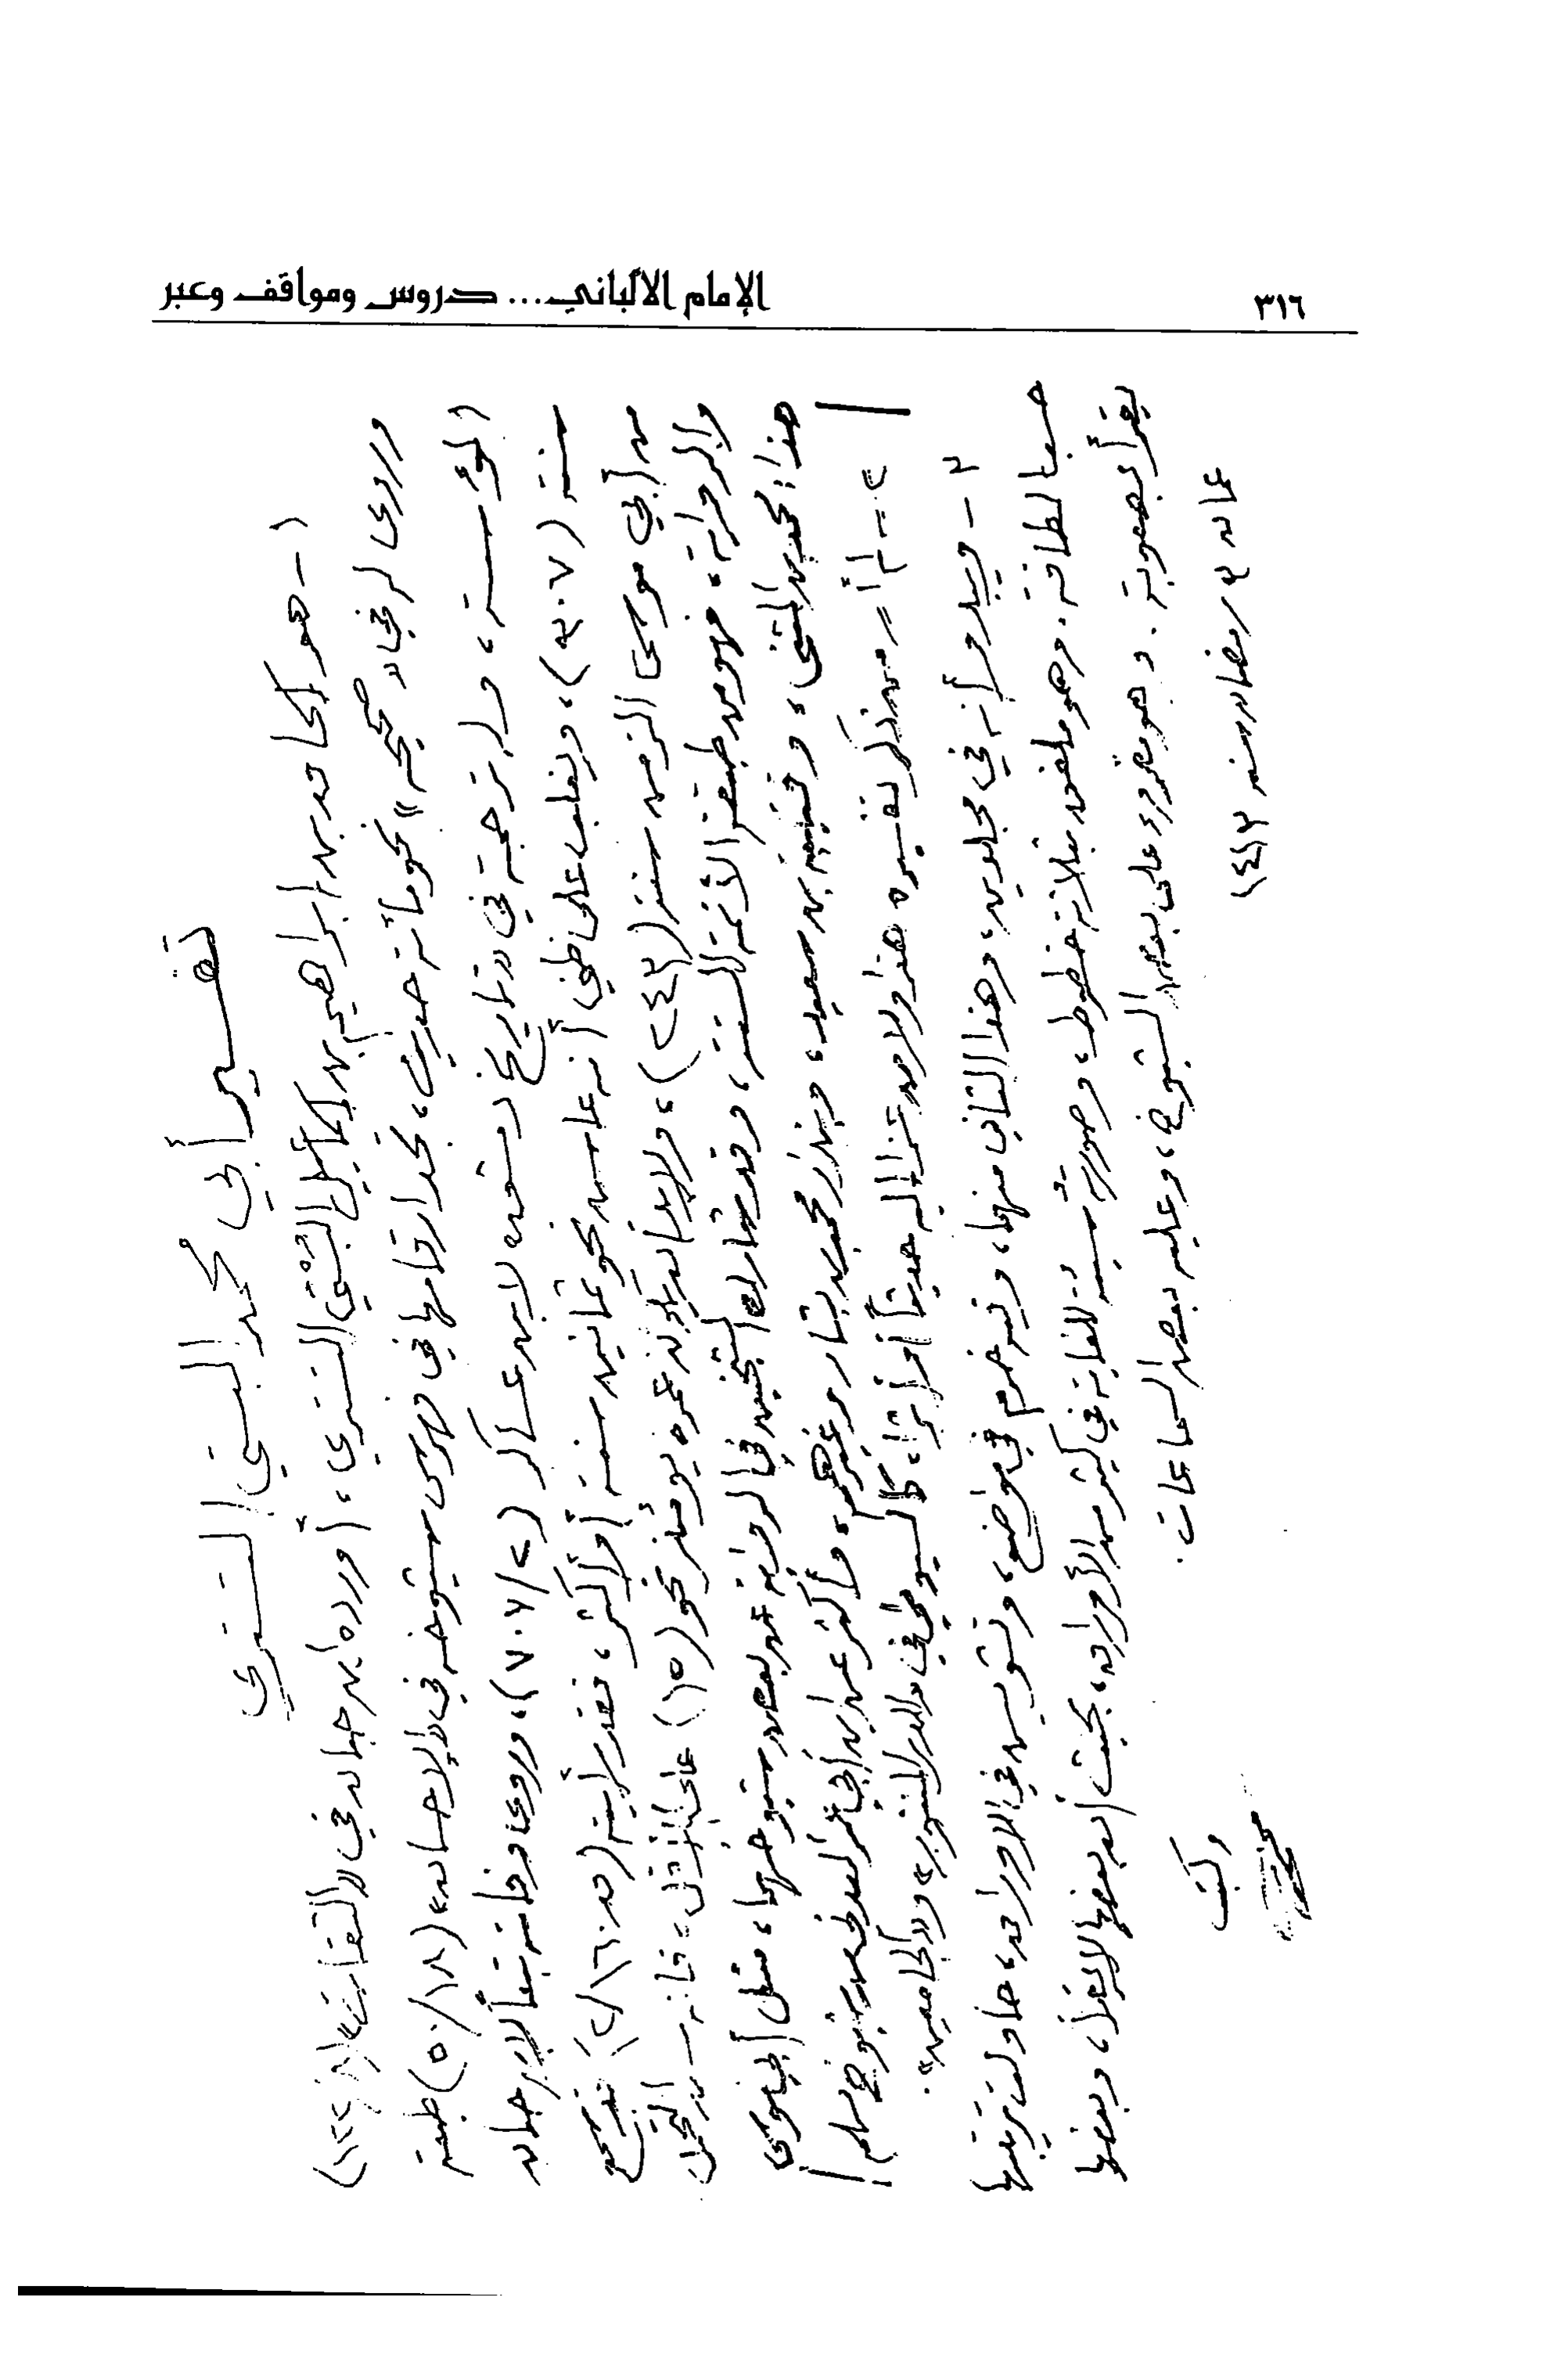 ٣١٦
الإمام الألباني... دروس ومواقف وعبر
تفسير أبي محمد البستي التستري
١ - هو إسحاق بن إبراهيم بن إسماعيل البُستي التستري، أورده ابن حبان في «الثقات» (٨/١٢٢)
وروى له في «صحيحه» نحو مائة حديث، تجد أرقامها في فهرس شيوخه في «الإحسان» (١٨/٥٠) طبعة
المؤسسة، وله ترجمة في «تاريخ دمشق» لابن عساكر (٢/٧٠٧)، وروى وفاته تبعاً لابن حبان
سنة (٣٠٧)، ويغلب على ظني أنه عاش نحو ثمانين سنة أو أكثر، فقد رأيته (ق ١٦٠/٢) قد سمع
من أبي موسى الزمن سنة (٢٤٣)، ولا بد أن يكون عمره يومئذ نحو (١٥) على الأقل، فإنه سن التحمل
والرواية، فهو من طبقة الأئمة الستة، وقد شارك الشيخين في الرواية عن بعض شيوخهما، مثل أبي موسى
هذا: محمد بن المثنى، وقتيبة بن سعيد، وبندار محمد بن بشار وغيرهم، وأكثر عن ابن أبي عمر العدني من شيوخ مسلم
٢ - لم أر من ذكر تفسيره هذا ولا من عزا إليه حديثاً أو أثراً، كالسيوطي في «الدر المنثور» و«الجامعين».
٣ - ويبدو أنه في مجلدين، وهذا الثاني منهما، وفيه خرم في مواضع، وتشويش في الأوراق، حاولت ترتيبها
حسب الطاقة، وهو ملفق بثلاثة خطوط، وصورته سيئة للغاية في كثير من الأوراق، بحيث أن بعضها لا يقرأ، وبعضها
يقرأ بصعوبة. وهو مقروء على بعض الشيوخ، وعليه بعض السماعات.
وكتب
عمان رمضان سنة ١٤١٣